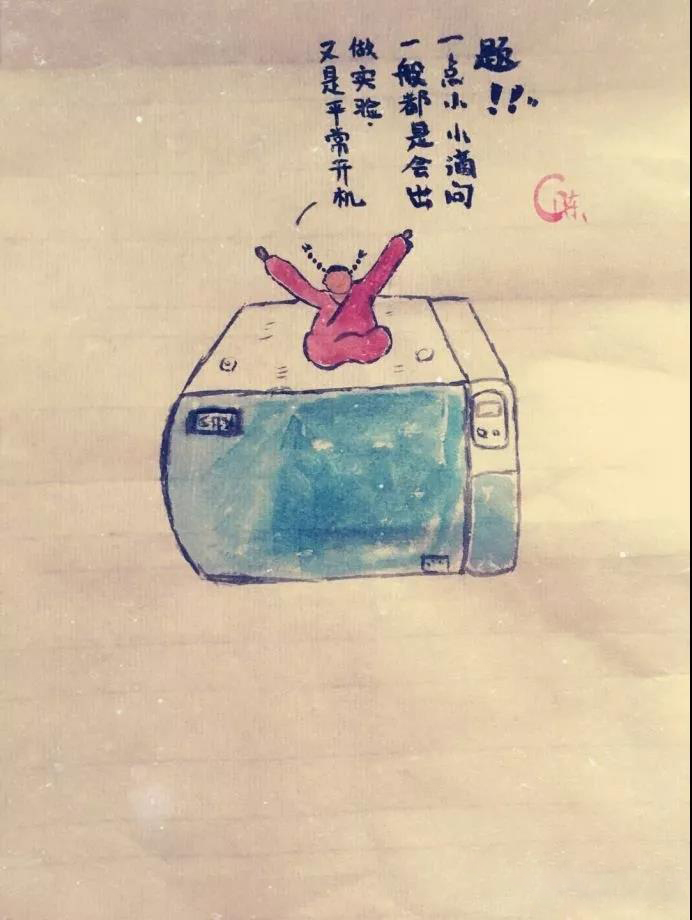 又是平常开机
做实验.
一般都是会出
一点小小滴问
题!!
陈